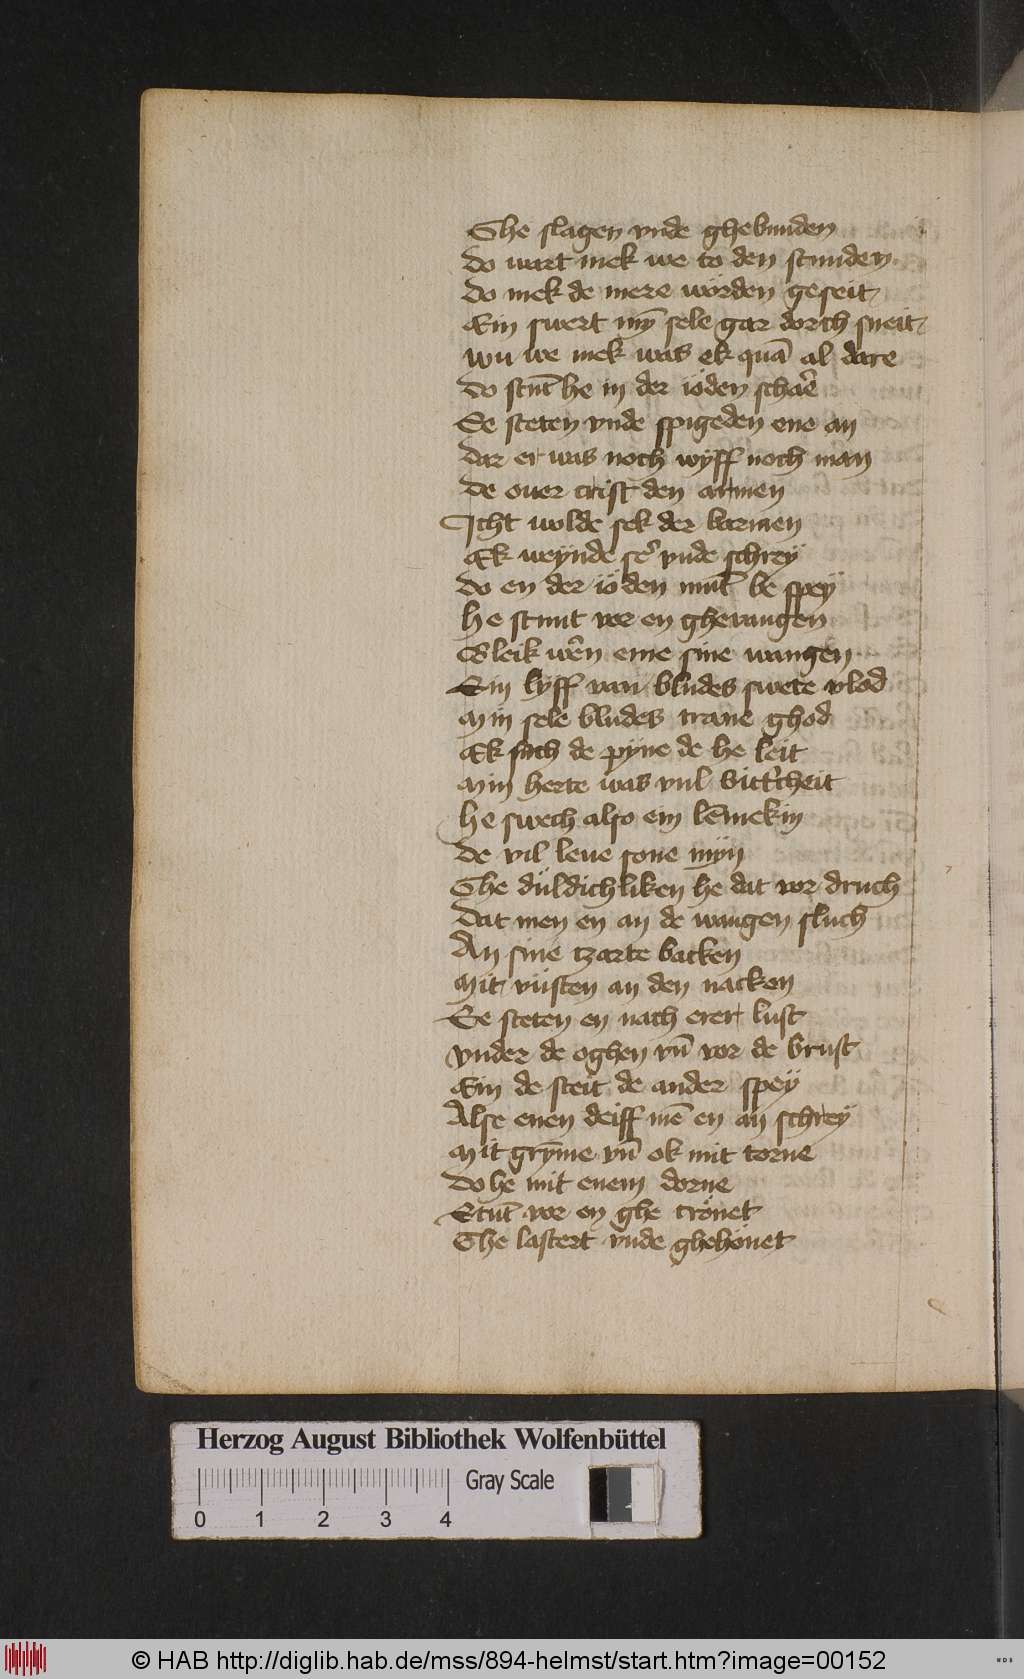 Ghe slagen vnde ghebunden
do wart mek we to den stunden
Do mek de mere wörden geseit
Ein swert mȳ sele gar dorch sneit
wu we mek was ek quā al dare
do stūt he in der iöden schar̄e
Se steten vnde spigeden ene an
dar er was noch wyff noch man
de ouer crist den armen
Icht wolde sek der barmen
Ek weynde se᷒ vnde schrey
do en der iöden mūt be spey
he stunt vor en ghevangen
Bleik wērn eme sine wangen
Sin lyff van bludes swete vlod
Min sele bludes trane ghod
Ek sach de pyne de he leit
Min herte was vul bitt᷒cheit
he swech also ein lēmekin
de vil leue sone myn
Ghe düldichliken he dat vor druch
Dat men en an de wangen sluch
An sine tzarte backen
Mit vüsten an den nacken
Se steten en nach erer lust
vnder de oghen vn̄ vor de brust
Ein de steit de ander spey
Alse enen deiff mē en an schrey
Mit gryme vn̄ ok mit torne
Do he mit enem dorne
Stūt vor en ghe crönet
Ghe lastert vnde ghehönet
Herzog August Bibliothek Wolfenbüttel
Gray Scale
0 1 2 3 4
© HAB http://diglib.hab.de/mss/894-helmst/start.htm?image=00152